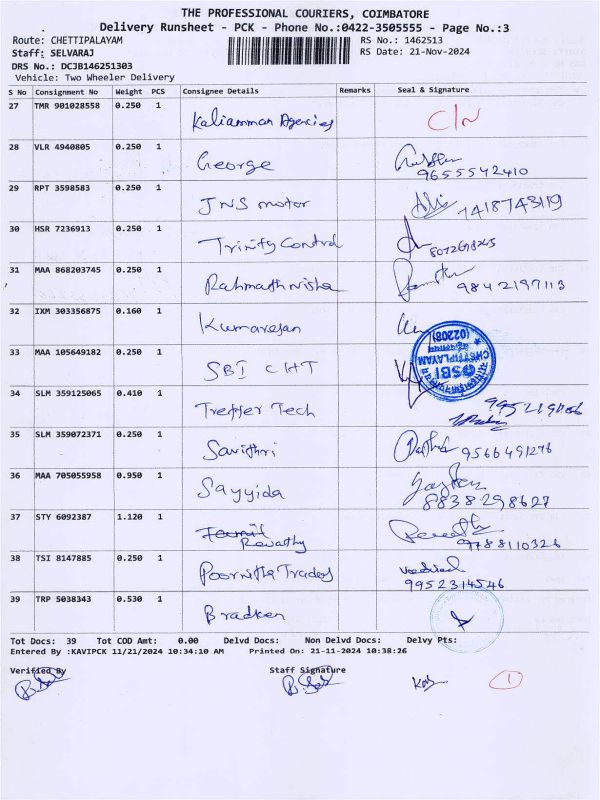 THE PROFESSIONAL COURIERS, COIMBATORE
Delivery Runsheet - PCK - Phone No.:0422-3505555 - Page No.:3
Route: CHETTIPALAYAM RS No.: 1462513
Staff: SELVARAJ RS Date: 21-Nov-2024
DRS No.: DCJB146251303
Vehicle: Two Wheeler Delivery
S No Consignment No Weight PCS Consignee Details Remarks Seal & Signature
27 TMR 901028558 0.250 1 Kaliamman Agencies C/N
28 VLR 4940805 0.250 1 George 9655542410
29 RPT 3598583 0.250 1 JNS motor 7418743119
30 HSR 7236913 0.250 1 Trinity Control
31 MAA 868203745 0.250 1 Rahmathnisha 9842197113
32 IXM 303356875 0.160 1 Kumaresan
33 MAA 105649182 0.250 1 SBI CHT SBI CHETTIPALAYAM (02208)
34 SLM 359125065 0.410 1 Treffer Tech
35 SLM 359072371 0.250 1 Savithri 9566491276
36 MAA 705055958 0.950 1 Sayyida 8838298627
37 STY 6092387 1.120 1 Revathy 9788110326
38 TSI 8147885 0.250 1 Poornitha Traders 9952314546
39 TRP 5038343 0.530 1 Bradken
Tot Docs: 39 Tot COD Amt: 0.00 Delvd Docs: Non Delvd Docs: Delvy Pts:
Entered By :KAVIPCK 11/21/2024 10:34:10 AM Printed On: 21-11-2024 10:38:26
Verified By Staff Signature
1